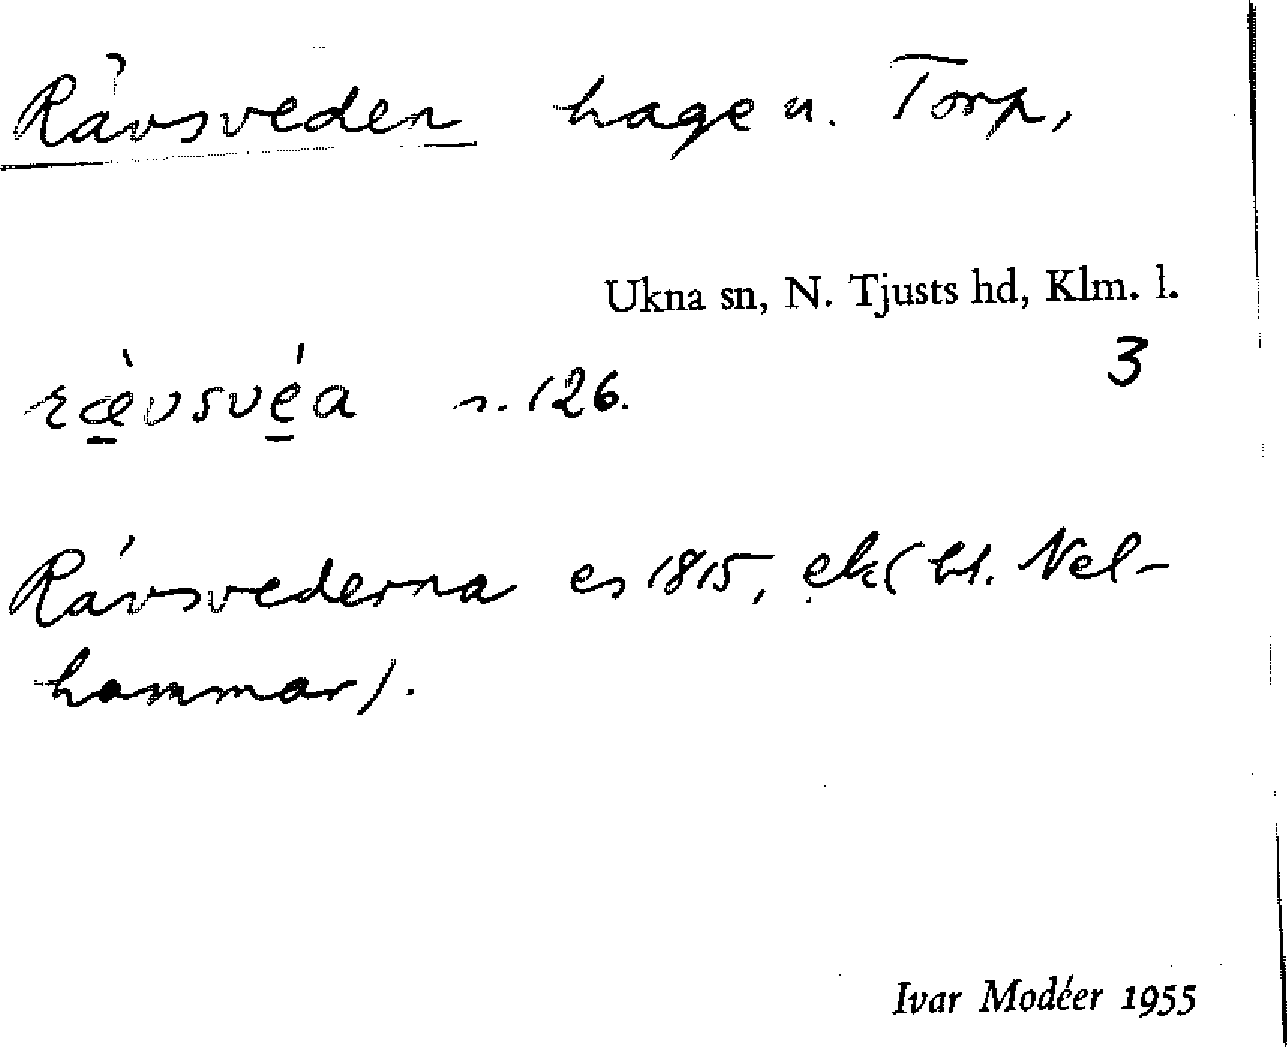 Rävsveden hage u. Torp,
Ukna sn, N. Tjusts hd, Klm. l.
3
ræ̀vsvéa s. 126.
Rävsvederna es 1815, ek( bl. Nel-
hammar).
Ivar Modéer 1955